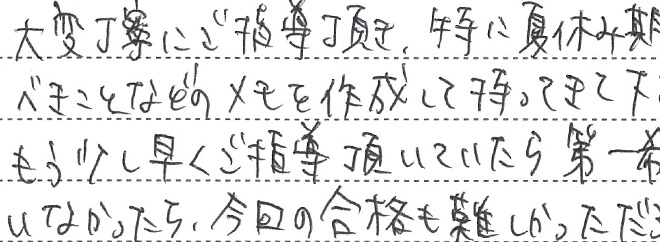 大変丁寧にご指導頂き、特に夏休み期
べきことなどのメモを作成して持ってきて下
もう少し早くご指導頂いていたら第一希
いなかったら、今回の合格も難しかっただろ